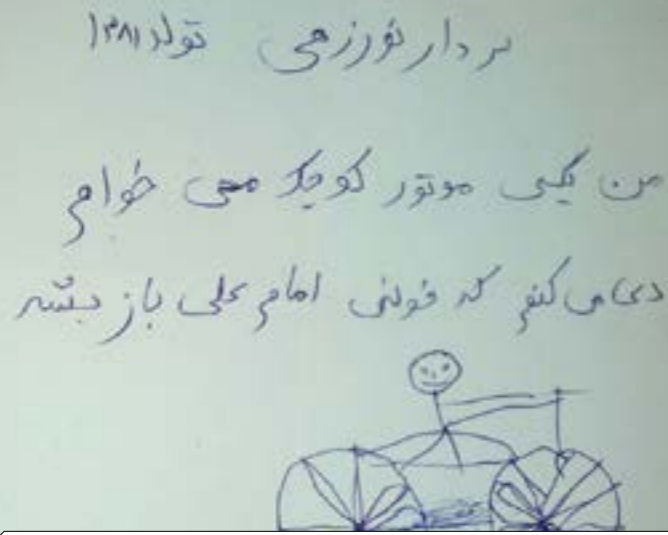 بردار نورزهی تولد ۱۳۸۱
من یکی موتور کوچک می خوام
دعا می کنم که خونی امام علی باز بشه